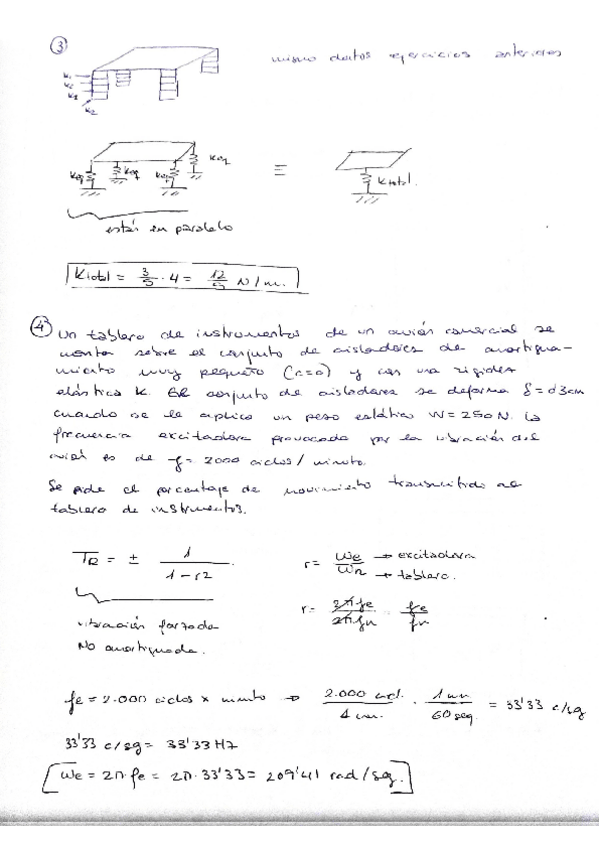 ③
mismo datos ejercicios anteriores
K₁
K₂
K₃
K₂
Keq Keq Keq Keq
≡
Ktotal.
están en paralelo
Ktotal = 3/5 · 4 = 12/5 N/m.
④ Un tablero de instrumentos de un avión comercial se
monta sobre el conjunto de aisladores de amortigua-
miento muy pequeño (c=0) y con una rigidez
elástica K. El conjunto de aisladores se deforma δ=0'3cm
cuando se le aplica un peso estático W=250N. La
frecuencia excitadora provocada por la vibración del
avión es de f= 2000 ciclos/minuto.
Se pide el porcentaje de movimiento transmitido al
tablero de instrumentos.
TR = ± 1 / 1-r2
r= We/Wn → excitadora → tablero.
r= 2πfe/2πfn = fe/fn
vibración forzada
No amortiguada.
fe = 2.000 ciclos x minuto → 2.000 cicl./1 min. · 1 min/60 seg. = 33'33 c/sg
33'33 c/sg = 33'33 Hz
We = 2π·fe = 2π·33'33 = 209'41 rad/seg.